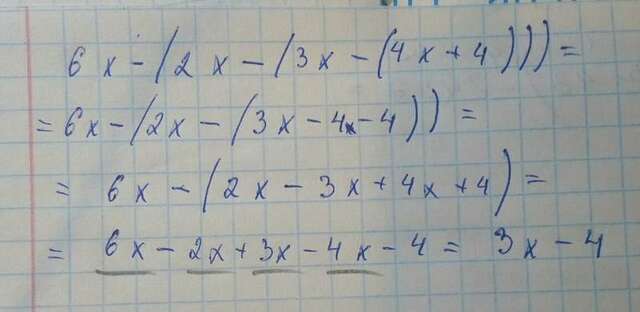 6x-(2x-(3x-(4x+4)))=
=6x-(2x-(3x-4x-4))=
=6x-(2x-3x+4x+4)=
=6x-2x+3x-4x-4=3x-4